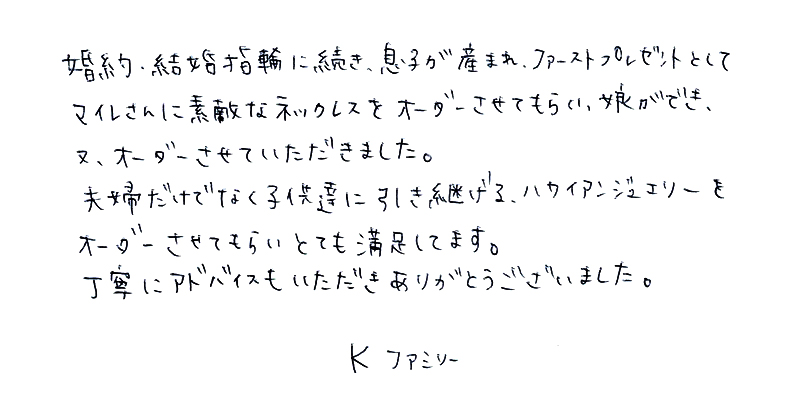 婚約・結婚指輪に続き、息子が産まれ、ファーストプレゼントとして
マイレさんに素敵なネックレスをオーダーさせてもらい、娘ができ、
又、オーダーさせていただきました。
夫婦だけでなく子供達に引き継げる、ハワイアンジュエリーを
オーダーさせてもらいとても満足してます。
丁寧にアドバイスもいただきありがとうございました。
K ファミリー